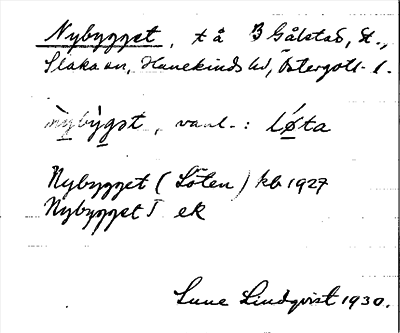 Nybygget, t å 3 Gålstad, St.,
Slaka sn, Hanekinds hd, Östergötl. l.
nỳbỳgət, vanl.: Lǿta
Nybygget (Löten) kb 1927
Nybygget T ek
Sune Lindqvist 1930.